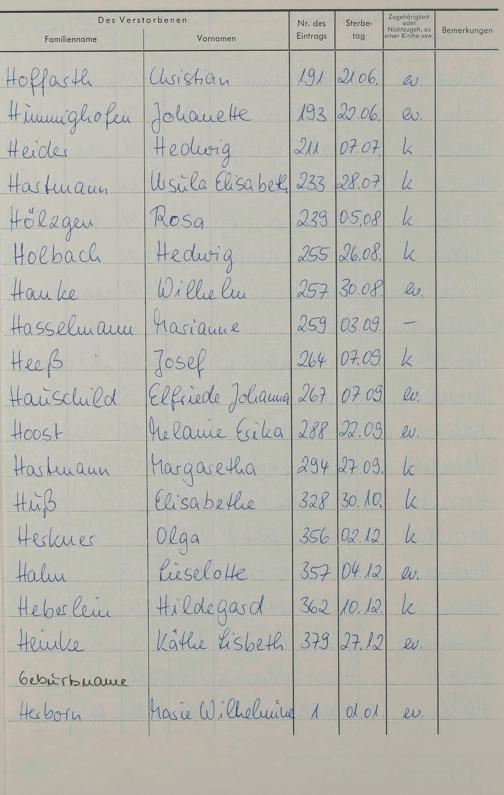 Des Verstorbenen
Familienname Vornamen Nr. des Eintrags Sterbetag Zugehörigkeit oder Nichtzugeh. zu einer Kirche usw. Bemerkungen
Hoffarth Christian 191 21.06. ev.
Himmighofen Johanette 193 22.06. ev.
Heider Hedwig 211 07.07. k
Hartmann Ursula Elisabeth 233 28.07. k
Hölzgen Rosa 239 05.08 k
Holbach Hedwig 255 26.08. k
Hanke Wilhelm 257 30.08. ev.
Hasselmann Marianne 259 03.09. –
Heeß Josef 264 07.09 k
Hauschild Elfriede Johanna 267 07.09. ev.
Hoost Melanie Erika 288 22.09. ev.
Hartmann Margaretha 294 27.09. k
Huß Elisabethe 328 30.10. k
Herkner Olga 356 02.12. k
Hahn Lieselotte 357 04.12. ev.
Heberlein Hildegard 362 10.12. k
Heinke Käthe Lisbeth 379 27.12 ev.
Geburtsname
Herborn Marie Wilhelmine 1 01.01. ev.